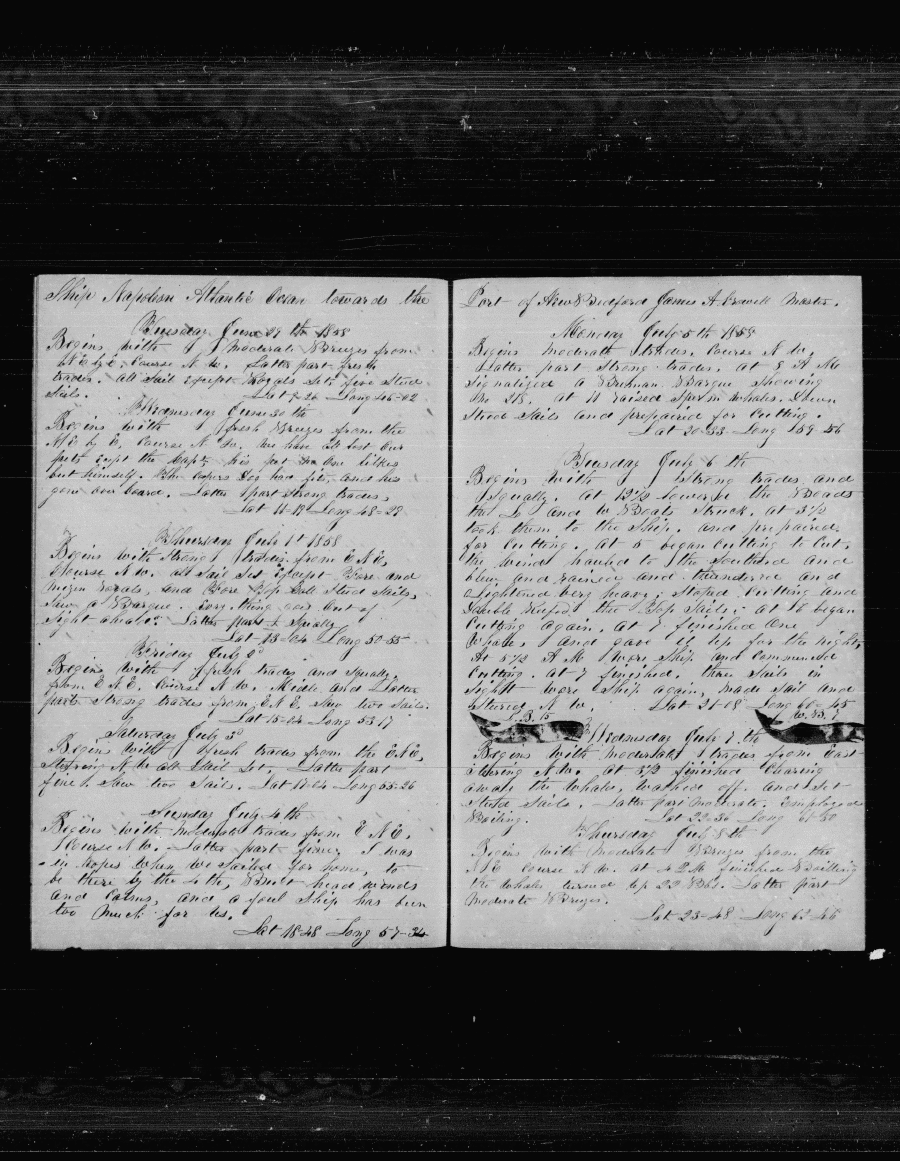 Ship Napoleon Atlantic Ocean towards the
Tuesday June 29 th 1858
Begins with moderate Breezes from
N E by E, Course N. W. Latter part fresh
trades. all sail except Royals set five Stud
Sails. Lat 9-26 Long 46-02
Wednesday June 30 th
Begins with fresh Breezes from the
N E by E. Course N. W. We have all lost our
pets except the Capt. his pet no one likes
but himself. The Coopers Dog have fits, and has
gone over board. Latter part strong trades,
Lat 11-18 Long 48-29
Thursday July 1st 1858
Begins with strong trades from E N E,
Course N. W. all sail set except Fore and
Mizen Royals, and Fore Top Gall Stud Sails,
Saw a Barque. Every thing goes out of
Sight ahead. Latter part Squally
Lat 13-04 Long 50-55
Friday July 2d
Begins with fresh trades and Squally
from E N E. Course N. W. Middle and Latter
parts Strong trades from E N E. Saw two Sails.
Lat 15-04 Long 53-17
Saturday July 3d
Begins with fresh trades from the E.N.E,
Stearing N. W. all Sail Set, Latter part
fine. Saw two Sail. Lat 17-04 Long 55-26
Sunday July 4th
Begins with Moderate trades from E N E.
Course N. W. Latter part fine, I was
in hopes when we Sailed for home, to
be there by the 4th, But head winds
and Calms, and a foul Ship has been
too much for us.
Lat 18-48 Long 57-34
Port of New Bedford James A Crowell Master.
Monday July 5th 1858
Begins moderate trades, Course N W,
Latter part Strong trades, at 8 A M
Signalized a Breman Barque showing
No 218, at 11 raised Sperm Whales. Down
Stud Sails and prepaired for Cutting.
Lat 20-33 Long 59-56
Tuesday July 6 th
Begins with strong trades and
Squally. at 12 1/2 lowered the Boats
the L and W Boats Struck. at 3 1/2
took them to the Ship. and prepaired
for Cutting. at 5 began Cutting to Cut,
the wind hauled to the Southerd and
blew and rained and thundered and
Lightened very heavy; Stoped Cutting and
Double Reefed the Top Sails; at 6 began
Cutting again, at 8 finished one
Whale, and gave it up for the night,
At 5 1/2 A M Wore Ship and Commenced
Cutting. at 7 finished. three Sails in
Sight wore Ship again, made Sail and
Steered N. W. Lat 21-08 Long 60-45
L. B. 15 W. B. 7
Wednesday July 7 th
Begins with moderate trades from East
Stearing N. W. at 5 1/2 finished Clearing
away the Whales, washed off. and Set
Stud Sails. Latter part Moderate. Employed
Boiling. Lat 22-36 Long 61-30
Thursday July 8 th
Begins with moderate Breezes from the
N E course N. W. at 4 P M finished Boilling
the whales turned up 22 Bbls. Latter part
Moderate Breezes.
Lat 23-48 Long 62-46